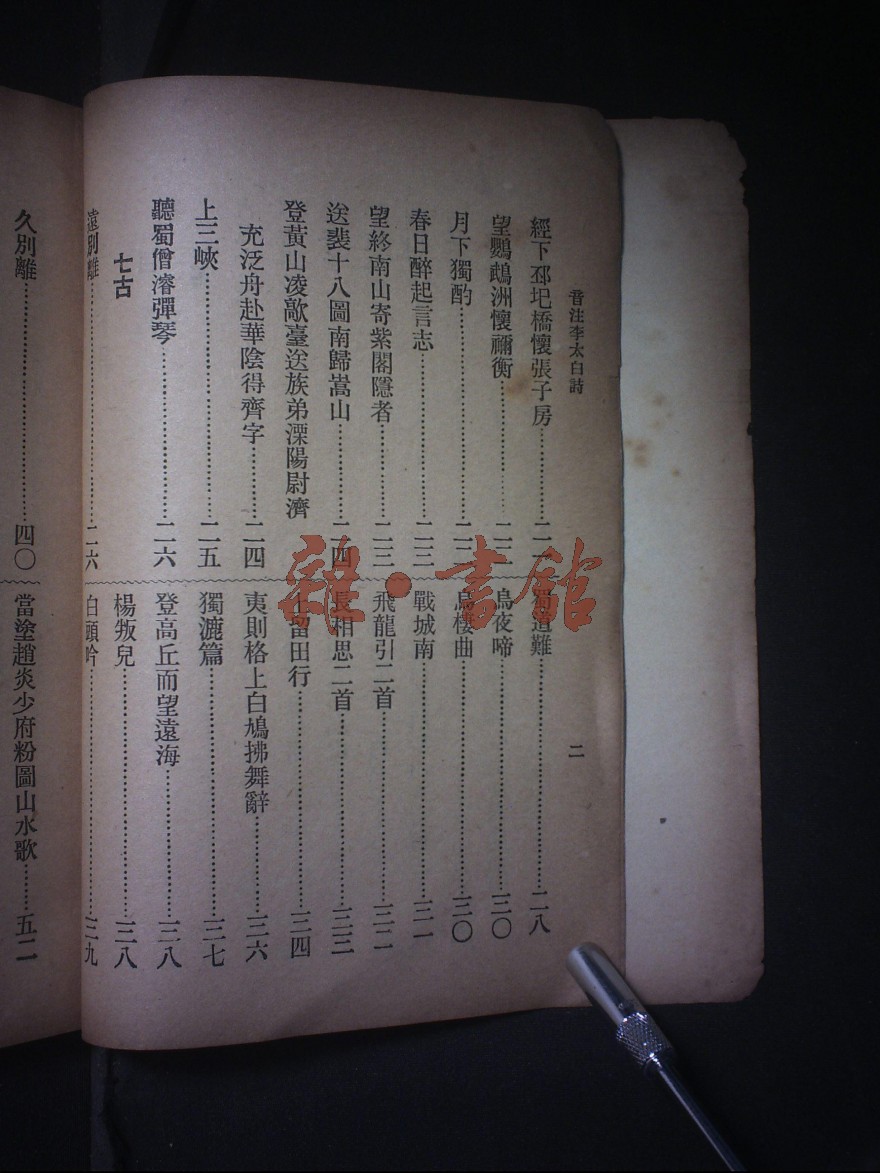 音注李太白詩
二
經下邳圯橋懷張子房……二一
望鸚鵡洲懷禰衡……二二
月下獨酌……二二
春日醉起言志……二三
望終南山寄紫閣隱者……二三
送裴十八圖南歸嵩山……二四
登黃山凌歊臺送族弟溧陽尉濟
充泛舟赴華陰得齊字……二四
上三峽……二五
聽蜀僧濬彈琴……二六
七古
遠別離……二六
蜀道難……二八
烏夜啼……三〇
烏棲曲……三〇
戰城南……三一
飛龍引二首……三二
長相思二首……三三
上留田行……三四
夷則格上白鳩拂舞辭……三六
獨漉篇……三七
登高丘而望遠海……三八
楊叛兒……三八
白頭吟……三九
久別離……四〇
當塗趙炎少府粉圖山水歌……五二
雜·書館